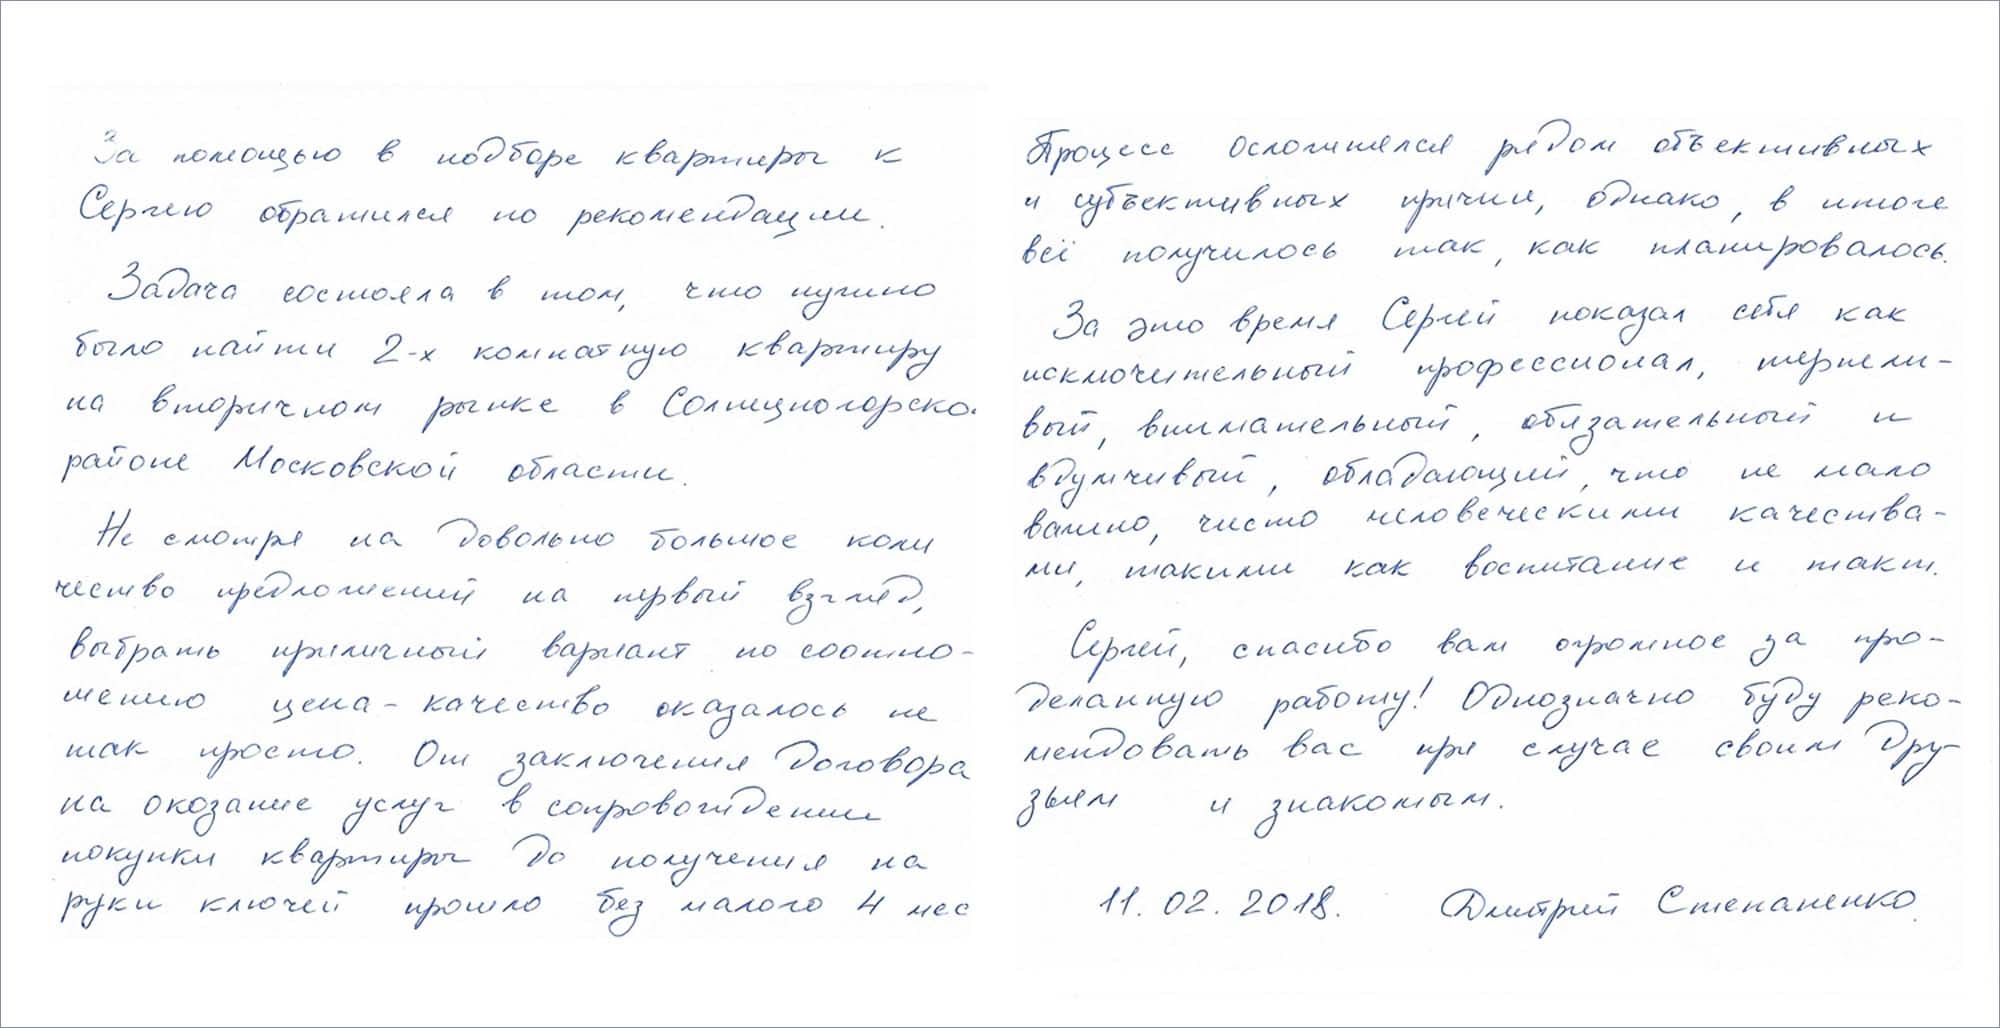 За помощью в подборе квартиры к
Сергею обратился по рекомендации.
Задача состояла в том, что нужно
было найти 2-х комнатную квартиру
на вторичном рынке в Солнечногорско.
районе Московской области.
Не смотря на довольно большое коли
чество предложений на первый взгляд,
выбрать приличный вариант по соотно-
шению цена-качество оказалось не
так просто. От заключения договора
на окозание услуг в сопровождении
покупки квартиры до получения на
руки ключей прошло без малого 4 мес
Процесс осложнялся рядом объективных
и субъективных причин, однако, в итоге
всё получилось так, как планировалось.
За это время Сергей показал себя как
исключительный профессионал, терпели-
вый, внимательный, обязательный и
вдумчивый, обладающий, что не мало
важно, чисто человеческими качества-
ми, такими как воспитание и такт.
Сергей, спасибо вам огромное за про-
деланную работу! Однозначно буду реко-
мендовать вас при случае своим дру-
зьям и знакомым.
11.02.2018. Дмитрий Степаненко.